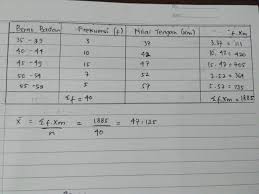 Berat Badan Frekuensi (f) Nilai Tengah (xm) f.xm
35 - 39 3 37 3.37 = 111
40 - 44 10 42 10.42 = 420
45 - 49 15 47 15.47 = 705
50 - 54 7 52 7.52 = 364
55 - 59 5 57 5.57 = 285
Σf = 40 Σf.xm = 1885
x̄ = Σf.xm / n = 1885 / 40 = 47,125